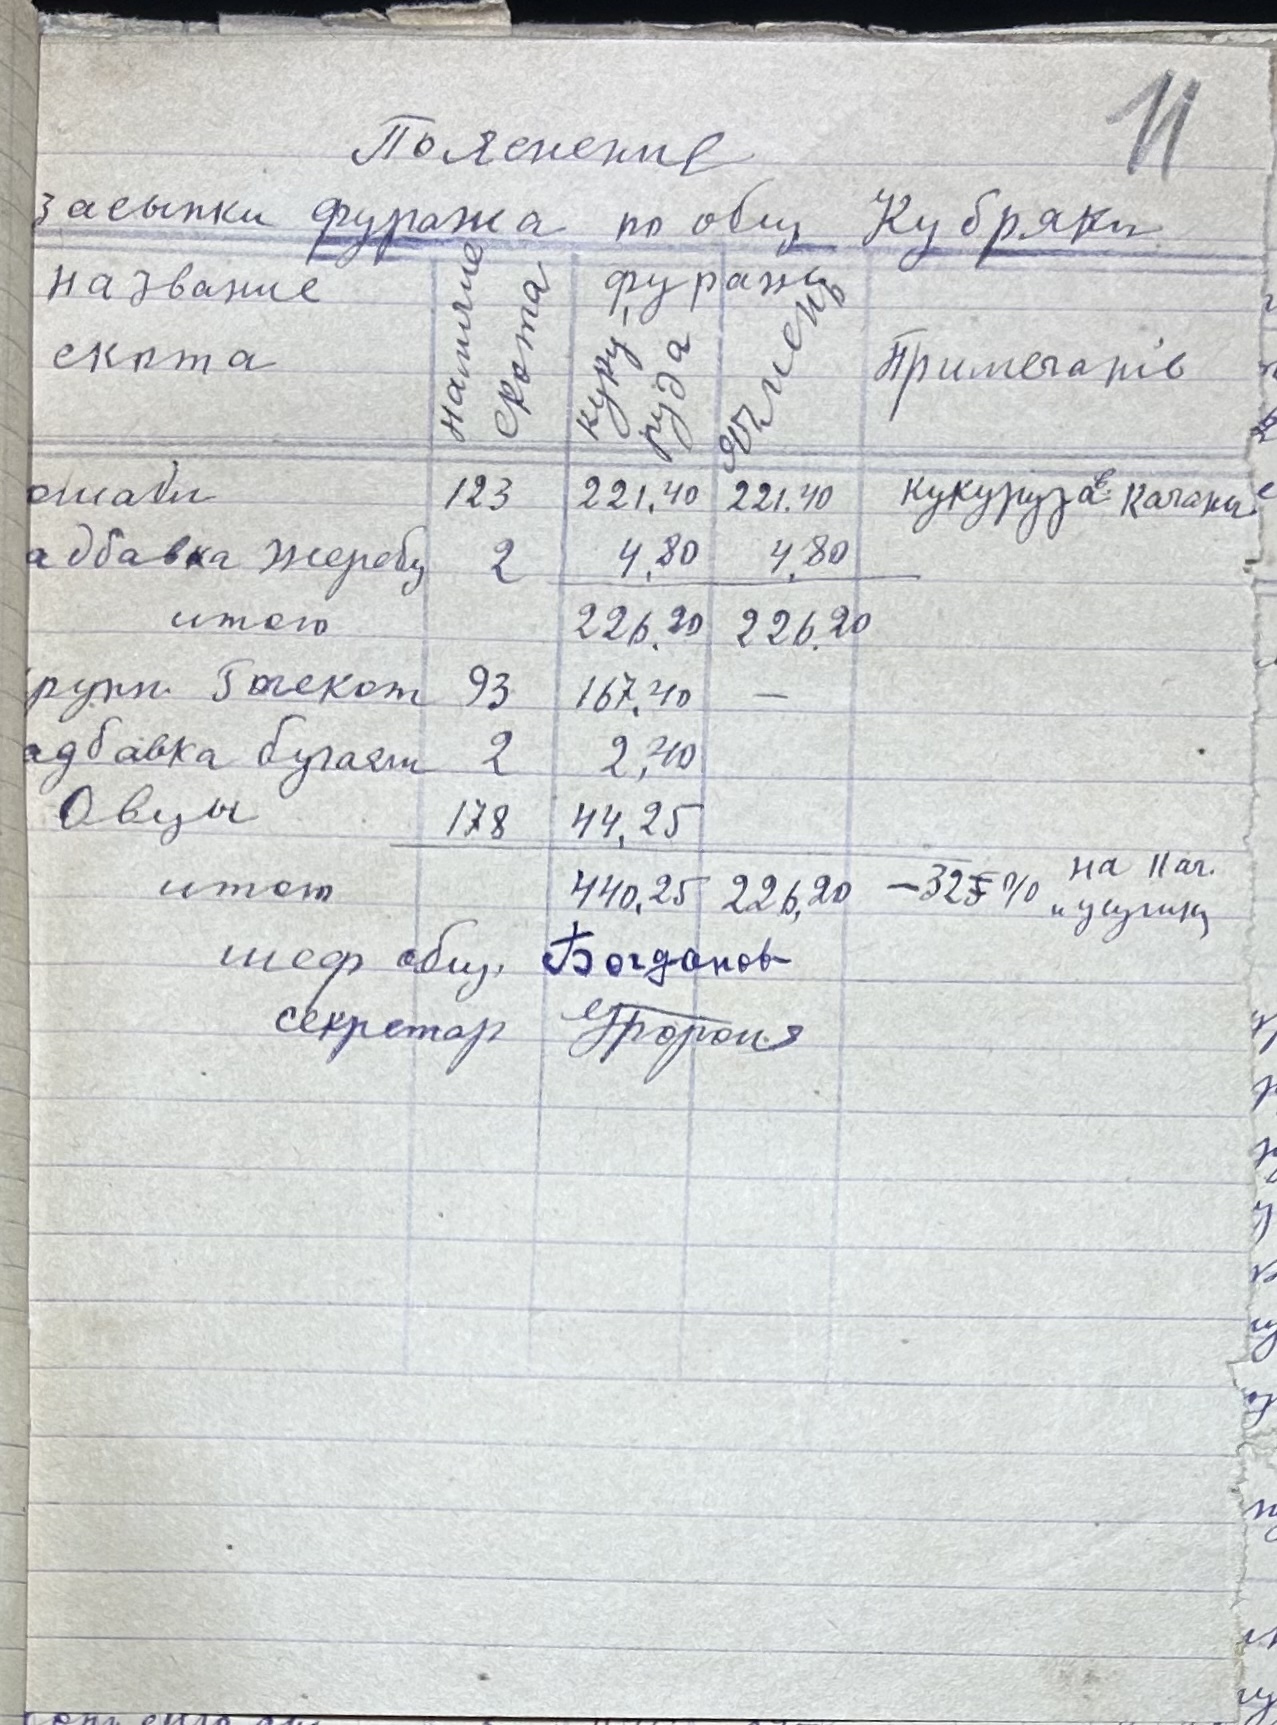 11
Пояснение
засыпки фуража по общ Кубряки
название скота наличие скота фураж куку-руза Ячмень Примечание
ошади 123 221,40 221,40 кукуруза в качан
адбавка жеребц 2 4,80 4,80
итого 226,20 226,20
рупн. Рогскот 93 167,40 —
адбавка бугаям 2 2,40
Овцы 178 44,25
итого 440,25 226,20 —325% на кач.
шеф общ. Богданов
секретар